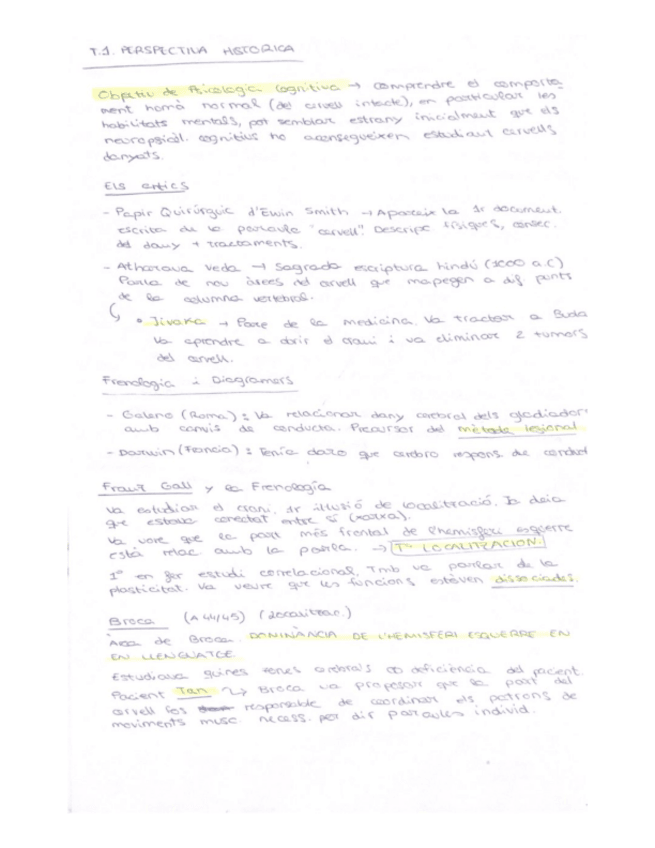 T.1. PERSPECTIVA HISTORICA
Objectiu de Psicologia Cognitiva → comprendre el comporta-
ment humà normal (del cervell intacte), en particular les
habilitats mentals, pot semblar estrany inicialment que els
neuropsicòl. cognitius no aconsegueixen estudiant cervells
danyats.
Els antics
- Papir Quirúrgic d'Ewin Smith → Apareix la 1r document
escrita de la paraula "cervell". Descripc físiques, consec.
del dany + tractaments.
- Atharava Veda → Sagrada escriptura hindú (a.C)
Parla de nou àrees del cervell que mapegen a dif. punts
de la columna vertebral.
• Jivaka → Pare de la medicina. Va tractar a Buda
Va aprendre a obrir el crani i va eliminar 2 tumors
del cervell.
Frenologia i Diagramers
- Galeno (Roma): Va relacionar dany cerebral dels gladiador
amb canvis de conducta. Precursor del mètode lesional
- Darwin (Francia): Tenía claro que cerebro respons. de conduct
Franz Gall y la Frenología
Va estudiar el crani. 1r il·lusió de localització. Ja deia
que estava conectat entre sí (xarxa).
Va vore que la part més frontal de l'hemisferi esquerre
està relac. amb la parla. → Tª LOCALITZACION.
1º en fer estudi correlacional. Tmb va parlar de la
plasticitat. Va veure que les funcions estàven dissociades.
Broca (A 44/45) (Localitzac.)
Àrea de Broca. DOMINÀNCIA DE L'HEMISFERI ESQUERRE EN
EN LLENGUATGE.
Estudiava quines zones cerebrals deficiència del pacient.
Pacient Tan ↳ Broca va proposar que la part del
cervell fos responsable de coordinar els patrons de
moviments musc. necess. per dir paraules individ.